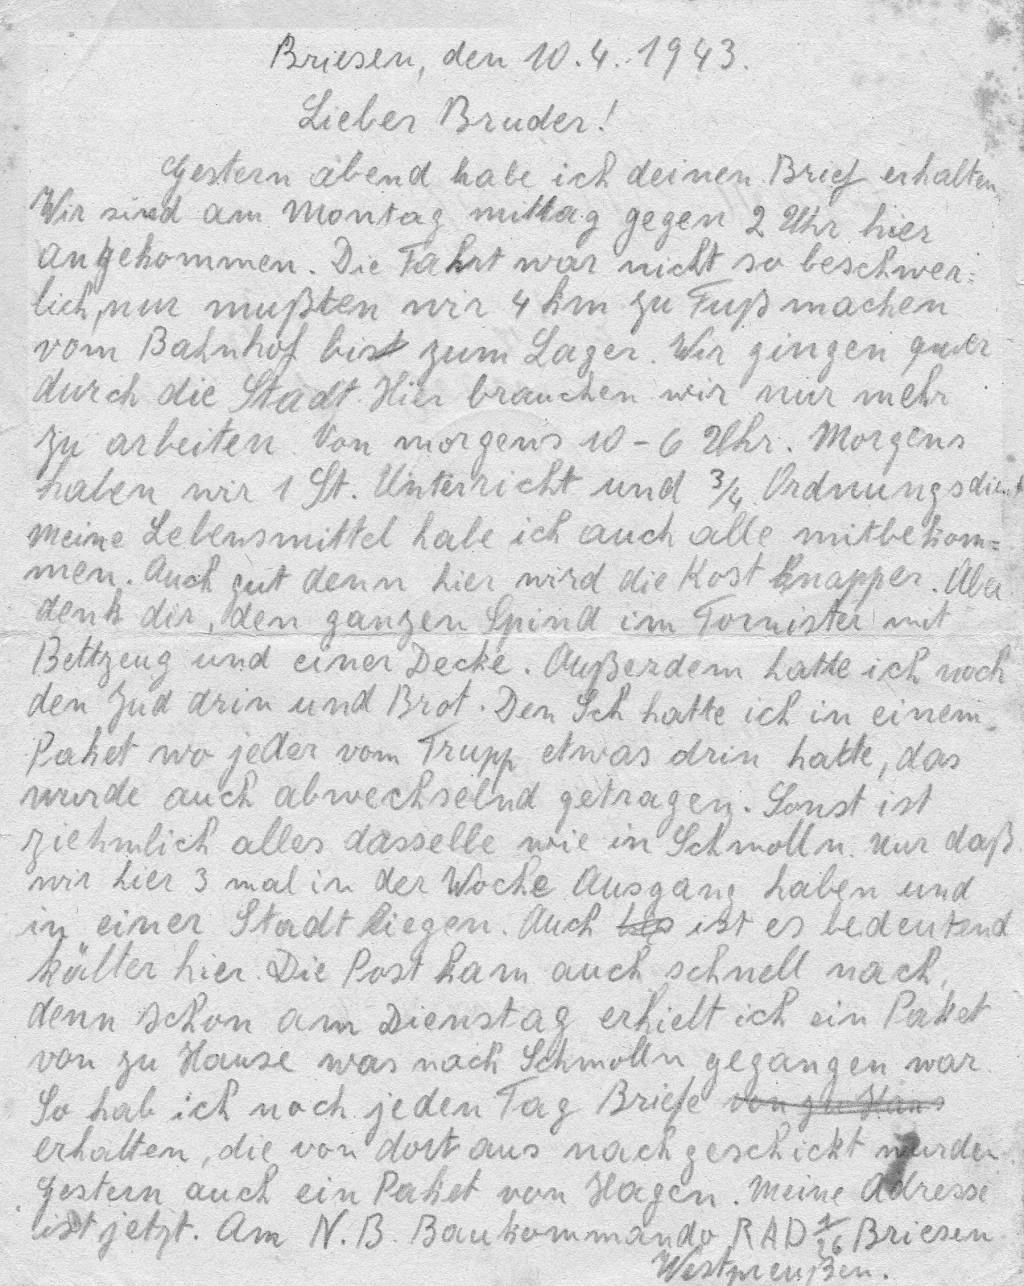 Briesen, den 10.4.1943.
Lieber Bruder!
Gestern abend habe ich deinen Brief erhalten
Wir sind am Montag mittag gegen 2 Uhr hier
angekommen. Die Fahrt war nicht so beschwer=
lich, nur mußten wir 4 km zu Fuß machen
vom Bahnhof bis zum Lager. Wir gingen quer
durch die Stadt. Hier brauchen wir nur mehr
zu arbeiten. Von morgens 10 - 6 Uhr. Morgens
haben wir 1 St. Unterricht und 3/4 Ordnungsdienst
Meine Lebensmittel habe ich auch alle mitbekom=
men. Auch gut denn hier wird die Kost knapper. Aber
denk dir, den ganzen Spind im Tornister mit
Bettzeug und einer Decke. Außerdem hatte ich noch
den drin und Brot. Den Sch hatte ich in einem
Paket wo jeder vom Trupp etwas drin hatte, das
wurde auch abwechselnd getragen. Sonst ist
ziehmlich alles dasselbe wie in Schmolln. Nur daß
wir hier 3 mal in der Woche Ausgang haben und
in einer Stadt liegen. Auch ist es bedeutend
kälter hier. Die Post kam auch schnell nach,
denn schon am Dienstag erhielt ich ein Paket
von zu Hause was nach Schmolln gegangen war.
So hab ich noch jeden Tag Briefe von zu Haus
erhalten, die von dort aus nachgeschickt wurden.
Gestern auch ein Paket von Hagen. Meine Adresse
ist jetzt. Am N.B. Baukommando RAD Briesen
Westpreußen.